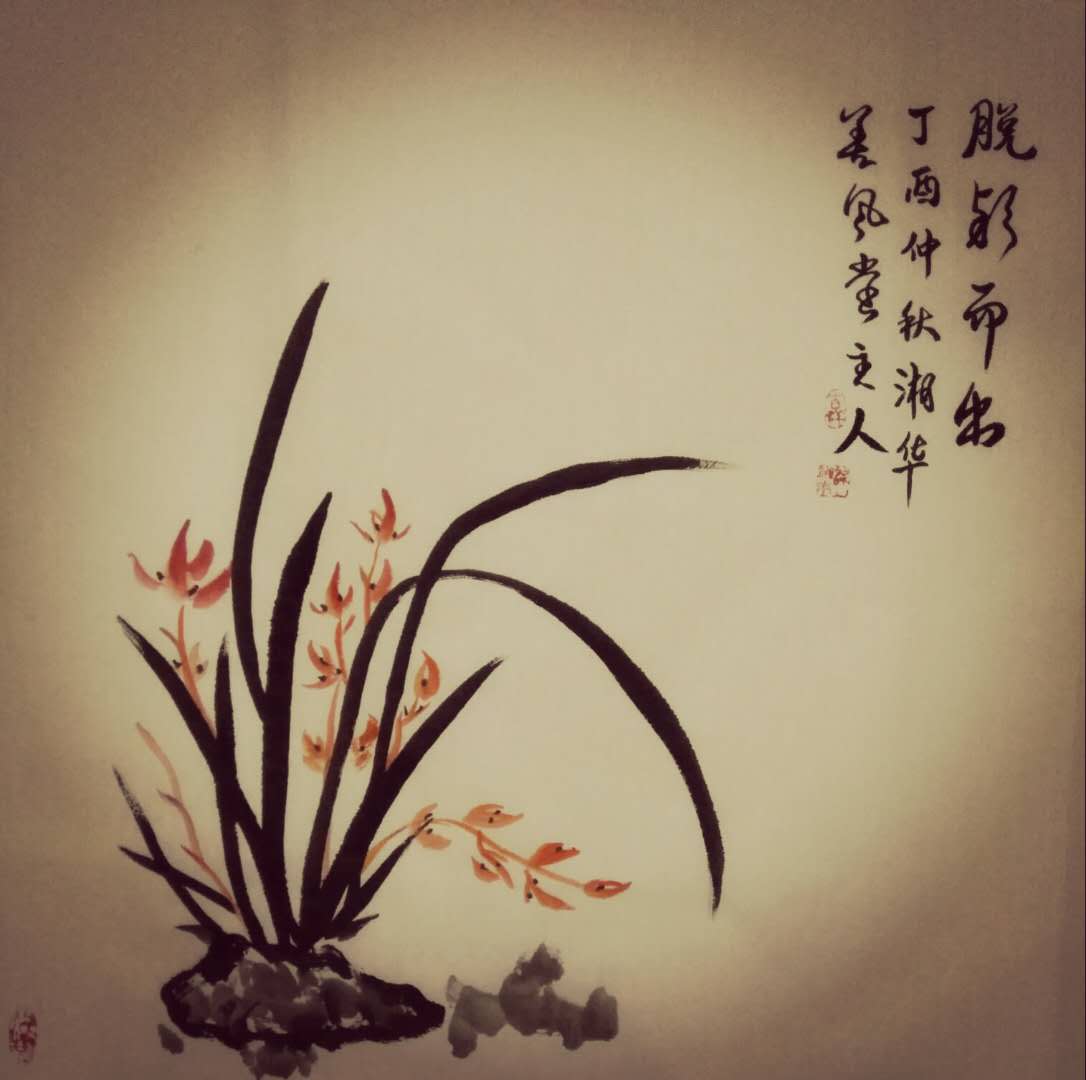 脱颖而出
丁酉仲秋湘华
善风堂主人